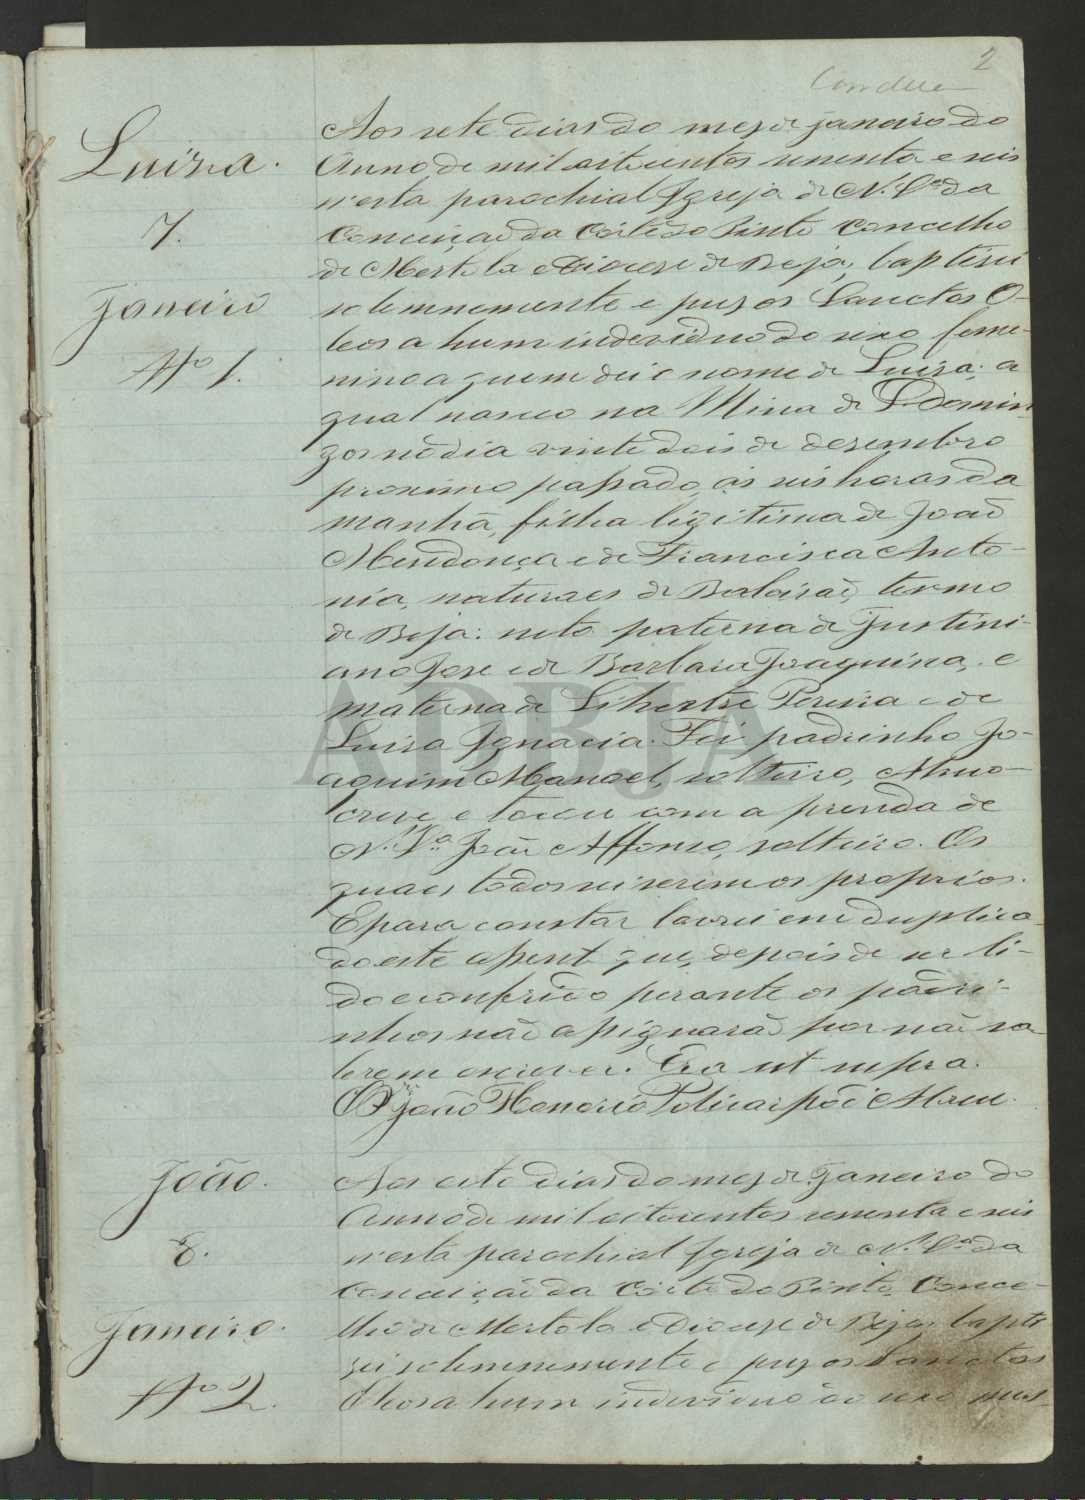 2
Luiza.
7.
Janeiro
Nº 1.
Aos sete dias do mez de janeiro do
Anno de mil oitocentos secenta e seis
n'esta parochial Igreja de N. Srª da
Conceição da Côrte do Pinto Concelho
de Mertola e Diocese de Beja, baptisei
solemnemente e puz os Sanctos O-
leos a hum individuo do sexo feme-
nino a quem dei o nome de Luiza; a
qual nasceu na Mina de S. Domin
gos no dia vinte dois de dezembro
proximo passado, ás seis horas da
manhã, filha ligitima de João
Mendonça e de Francisca Anto-
nia, naturaes de Baleisão, termo
de Beja: neta paterna de Justini-
ano Jose e de Barbara Joaquina, e
materna de Silvestre Pereira e de
Luiza Ignacia. Foi padrinho Jo-
aquim Manoel, solteiro, Almo-
creve, e tocou com a prenda de
N. Srª João Affonso, solteiro. Os
quaes todos sei serem os proprios.
E para constar lavrei em duplica-
do este assent que, depois de ser li-
do e conferido perante os padri-
nhos não assignarão por não sa
berem escrever. Era ut supra.
O Pr João Honorio Policarpo d'Abreu.
João.
8.
Janeiro.
Nº 2.
Aos oito dias do mez de Janeiro do
Anno de mil oitocentos secenta e seis
n'esta parochial Igreja de N. Srª da
Conceição da Côrte do Pinto, Conce-
lho de Mertola e Diocese de Beja, bapti
zei solemnemente e puz os Sanctos
Oleos a hum individuo do sexo mas-
ADBJA